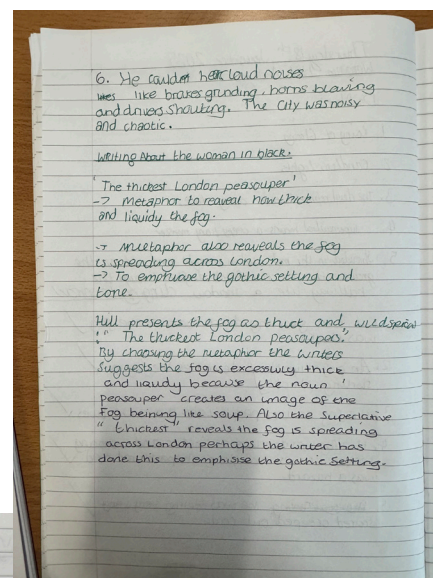 6. He could hear loud noises
like brakes grinding, horns blaring
and drivers shouting. The city was noisy
and chaotic.
Writing About the woman in black.
'The thickest London peasouper'
-> Metaphor to reaveal how thick
and liquidy the fog.
-> Metaphor also reaveals the fog
is spreading across London.
-> To emphasise the gothic setting and
tone.
Hill presents the fog as thick and
"The thickest London peasouper."
By choosing the metaphor the writers
suggests the fog is excessivly thick
and liquidy because the noun '
peasouper creates an image of the
Fog beining like soup. Also the Superlative
"thickest" reveals the fog is spreading
across London perhaps the writer has
done this to emphisise the gothic Setting.